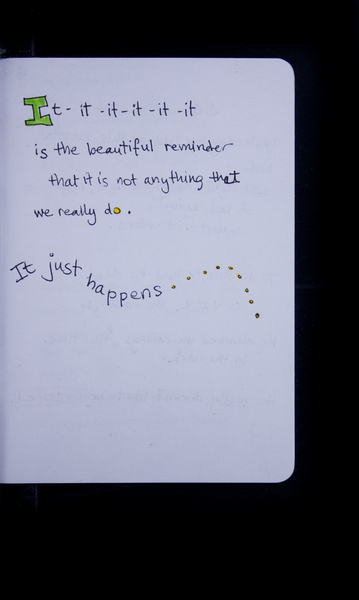 It - it - it - it - it - it
is the beautiful reminder
that it is not anything that
we really do.
It just happens........